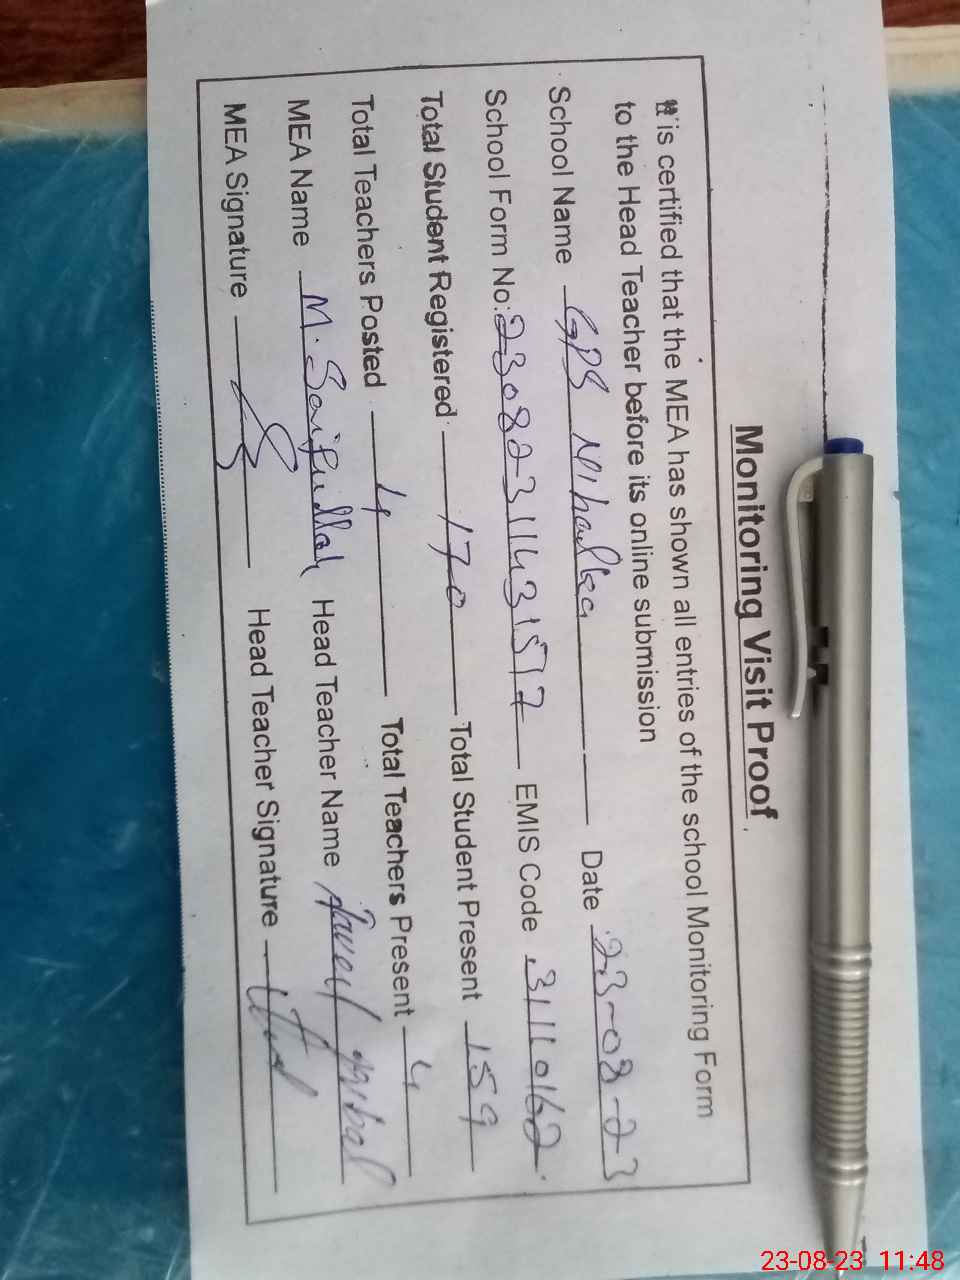 Monitoring Visit Proof
It is certified that the MEA has shown all entries of the school Monitoring Form
to the Head Teacher before its online submission
School Name GPS Date 23-08-23
School Form No: 2308231143157 EMIS Code 3110162
Total Student Registered 170 Total Student Present 159
Total Teachers Posted 4 Total Teachers Present 4
MEA Name M. Saifullah Head Teacher Name
MEA Signature Head Teacher Signature
23-08-23 11:48